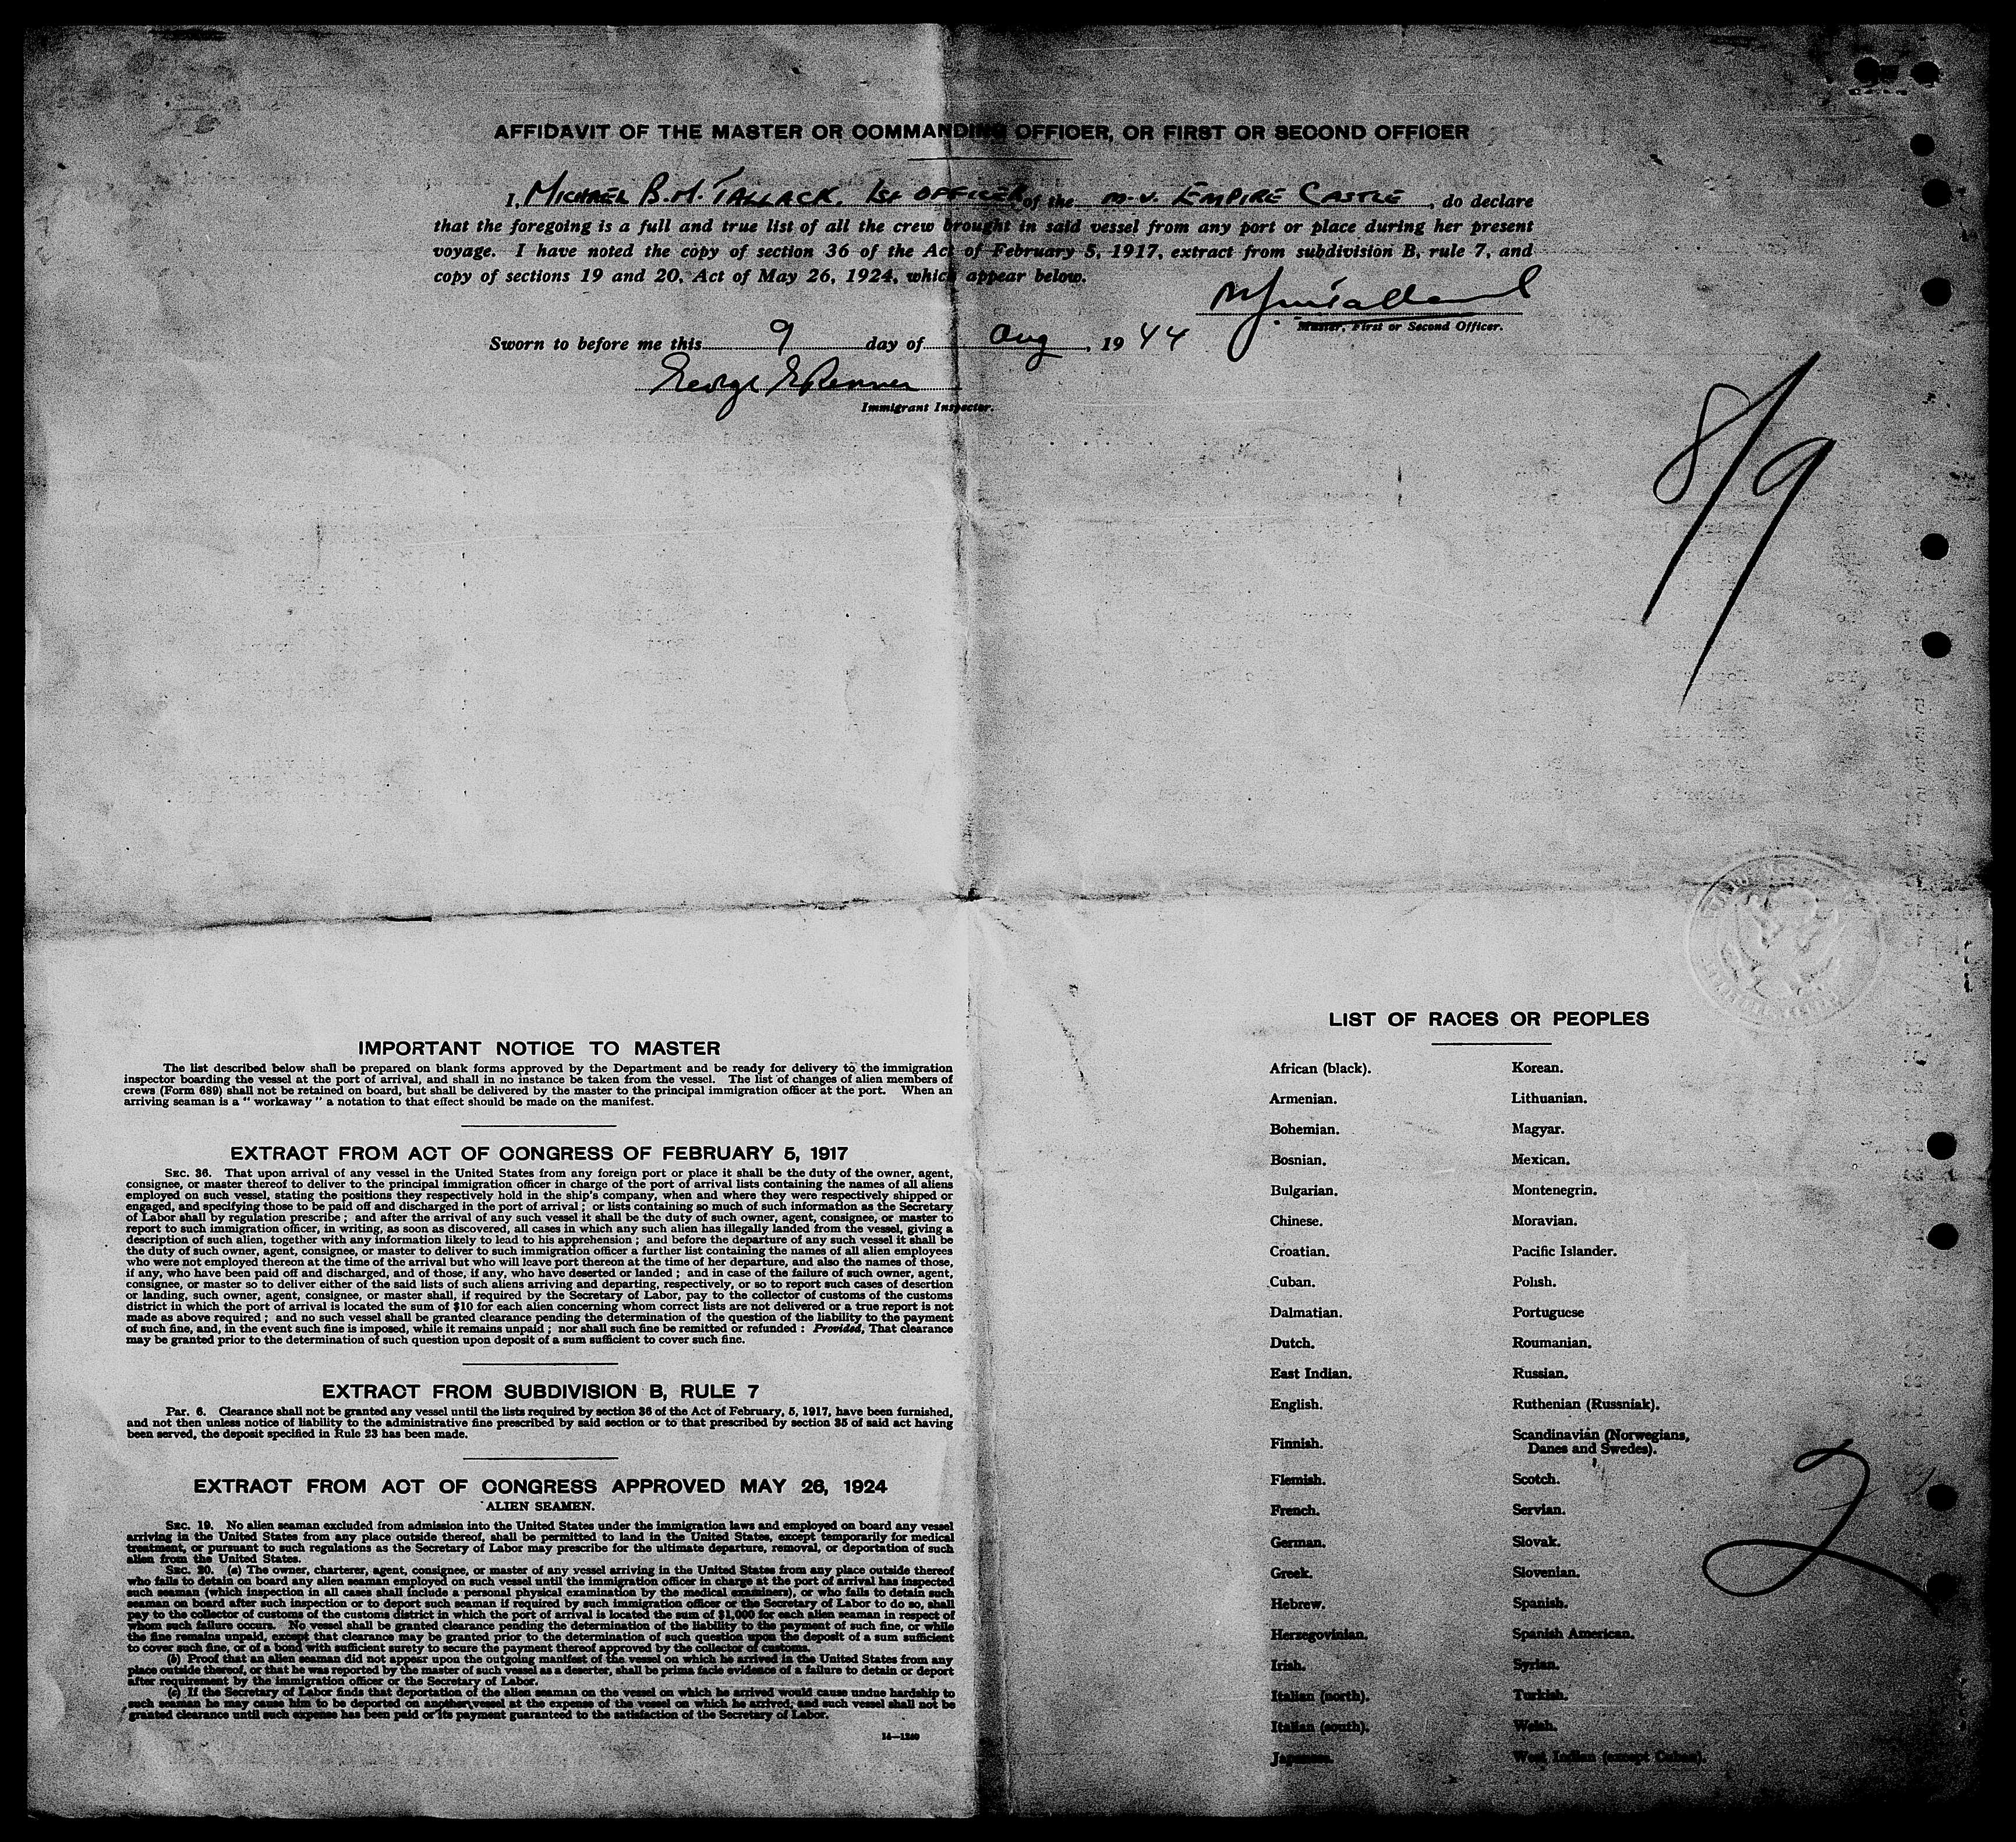 AFFIDAVIT OF THE MASTER OR COMMANDING OFFICER, OR FIRST OR SECOND OFFICER
I, MICHAEL B.M. TALLACK, 1st OFFICER of the M.V. EMPIRE CASTLE, do declare
that the foregoing is a full and true list of all the crew brought in said vessel from any port or place during her present
voyage. I have noted the copy of section 36 of the Act of February 5, 1917, extract from subdivision B, rule 7, and
copy of sections 19 and 20, Act of May 26, 1924, which appear below.
Master, First or Second Officer.
Sworn to before me this 9 day of Aug, 1944
George E Renner
Immigrant Inspector.
8/9
IMPORTANT NOTICE TO MASTER
The list described below shall be prepared on blank forms approved by the Department and be ready for delivery to the immigration
inspector boarding the vessel at the port of arrival, and shall in no instance be taken from the vessel. The list of changes of alien members of
crews (Form 689) shall not be retained on board, but shall be delivered by the master to the principal immigration officer at the port. When an
arriving seaman is a "workaway" a notation to that effect should be made on the manifest.
EXTRACT FROM ACT OF CONGRESS OF FEBRUARY 5, 1917
SEC. 36. That upon arrival of any vessel in the United States from any foreign port or place it shall be the duty of the owner, agent,
consignee, or master thereof to deliver to the principal immigration officer in charge of the port of arrival lists containing the names of all aliens
employed on such vessel, stating the positions they respectively hold in the ship's company, when and where they were respectively shipped or
engaged, and specifying those to be paid off and discharged in the port of arrival; or lists containing so much of such information as the Secretary
of Labor shall by regulation prescribe; and after the arrival of any such vessel it shall be the duty of such owner, agent, consignee, or master to
report to such immigration officer, in writing, as soon as discovered, all cases in which any such alien has illegally landed from the vessel, giving a
description of such alien, together with any information likely to lead to his apprehension; and before the departure of any such vessel it shall be
the duty of such owner, agent, consignee, or master to deliver to such immigration officer a further list containing the names of all alien employees
who were not employed thereon at the time of the arrival but who will leave port thereon at the time of her departure, and also the names of those,
if any, who have been paid off and discharged, and of those, if any, who have deserted or landed; and in case of the failure of such owner, agent,
consignee, or master so to deliver either of the said lists of such aliens arriving and departing, respectively, or so to report such cases of desertion
or landing, such owner, agent, consignee, or master shall, if required by the Secretary of Labor, pay to the collector of customs of the customs
district in which the port of arrival is located the sum of $10 for each alien concerning whom correct lists are not delivered or a true report is not
made as above required; and no such vessel shall be granted clearance pending the determination of the question of the liability to the payment
of such fine, and, in the event such fine is imposed, while it remains unpaid; nor shall such fine be remitted or refunded: Provided, That clearance
may be granted prior to the determination of such question upon deposit of a sum sufficient to cover such fine.
EXTRACT FROM SUBDIVISION B, RULE 7
PAR. 6. Clearance shall not be granted any vessel until the lists required by section 36 of the Act of February, 5, 1917, have been furnished,
and not then unless notice of liability to the administrative fine prescribed by said section or to that prescribed by section 35 of said act having
been served, the deposit specified in Rule 23 has been made.
EXTRACT FROM ACT OF CONGRESS APPROVED MAY 26, 1924
ALIEN SEAMEN.
SEC. 19. No alien seaman excluded from admission into the United States under the immigration laws and employed on board any vessel
arriving in the United States from any place outside thereof, shall be permitted to land in the United States, except temporarily for medical
treatment, or pursuant to such regulations as the Secretary of Labor may prescribe for the ultimate departure, removal, or deportation of such
alien from the United States.
SEC. 20. (a) The owner, charterer, agent, consignee, or master of any vessel arriving in the United States from any place outside thereof
who fails to detain on board any alien seaman employed on such vessel until the immigration officer in charge at the port of arrival has inspected
such seaman (which inspection in all cases shall include a personal physical examination by the medical examiners), or who fails to detain such
seaman on board after such inspection or to deport such seaman if required by such immigration officer or the Secretary of Labor to do so, shall
pay to the collector of customs of the customs district in which the port of arrival is located the sum of $1,000 for each alien seaman in respect of
whom such failure occurs. No vessel shall be granted clearance pending the determination of the liability to the payment of such fine, or while
the fine remains unpaid, except that clearance may be granted prior to the determination of such question upon the deposit of a sum sufficient
to cover such fine, or of a bond with sufficient surety to secure the payment thereof approved by the collector of customs.
(b) Proof that an alien seaman did not appear upon the outgoing manifest of the vessel on which he arrived in the United States from any
place outside thereof, or that he was reported by the master of such vessel as a deserter, shall be prima facie evidence of a failure to detain or deport
after requirement by the immigration officer or the Secretary of Labor.
(c) If the Secretary of Labor finds that deportation of the alien seaman on the vessel on which he arrived would cause undue hardship to
such seaman he may cause him to be deported on another vessel at the expense of the vessel on which he arrived, and such vessel shall not be
granted clearance until such expense has been paid or its payment guaranteed to the satisfaction of the Secretary of Labor.
14—1240
LIST OF RACES OR PEOPLES
African (black). Korean.
Armenian. Lithuanian.
Bohemian. Magyar.
Bosnian. Mexican.
Bulgarian. Montenegrin.
Chinese. Moravian.
Croatian. Pacific Islander.
Cuban. Polish.
Dalmatian. Portuguese
Dutch. Roumanian.
East Indian. Russian.
English. Ruthenian (Russniak).
Finnish. Scandinavian (Norwegians,
Danes and Swedes).
Flemish. Scotch.
French. Servian.
German. Slovak.
Greek. Slovenian.
Hebrew. Spanish.
Herzegovinian. Spanish American.
Irish. Syrian.
Italian (north). Turkish.
Italian (south). Welsh.
Japanese. West Indian (except Cuban).
2